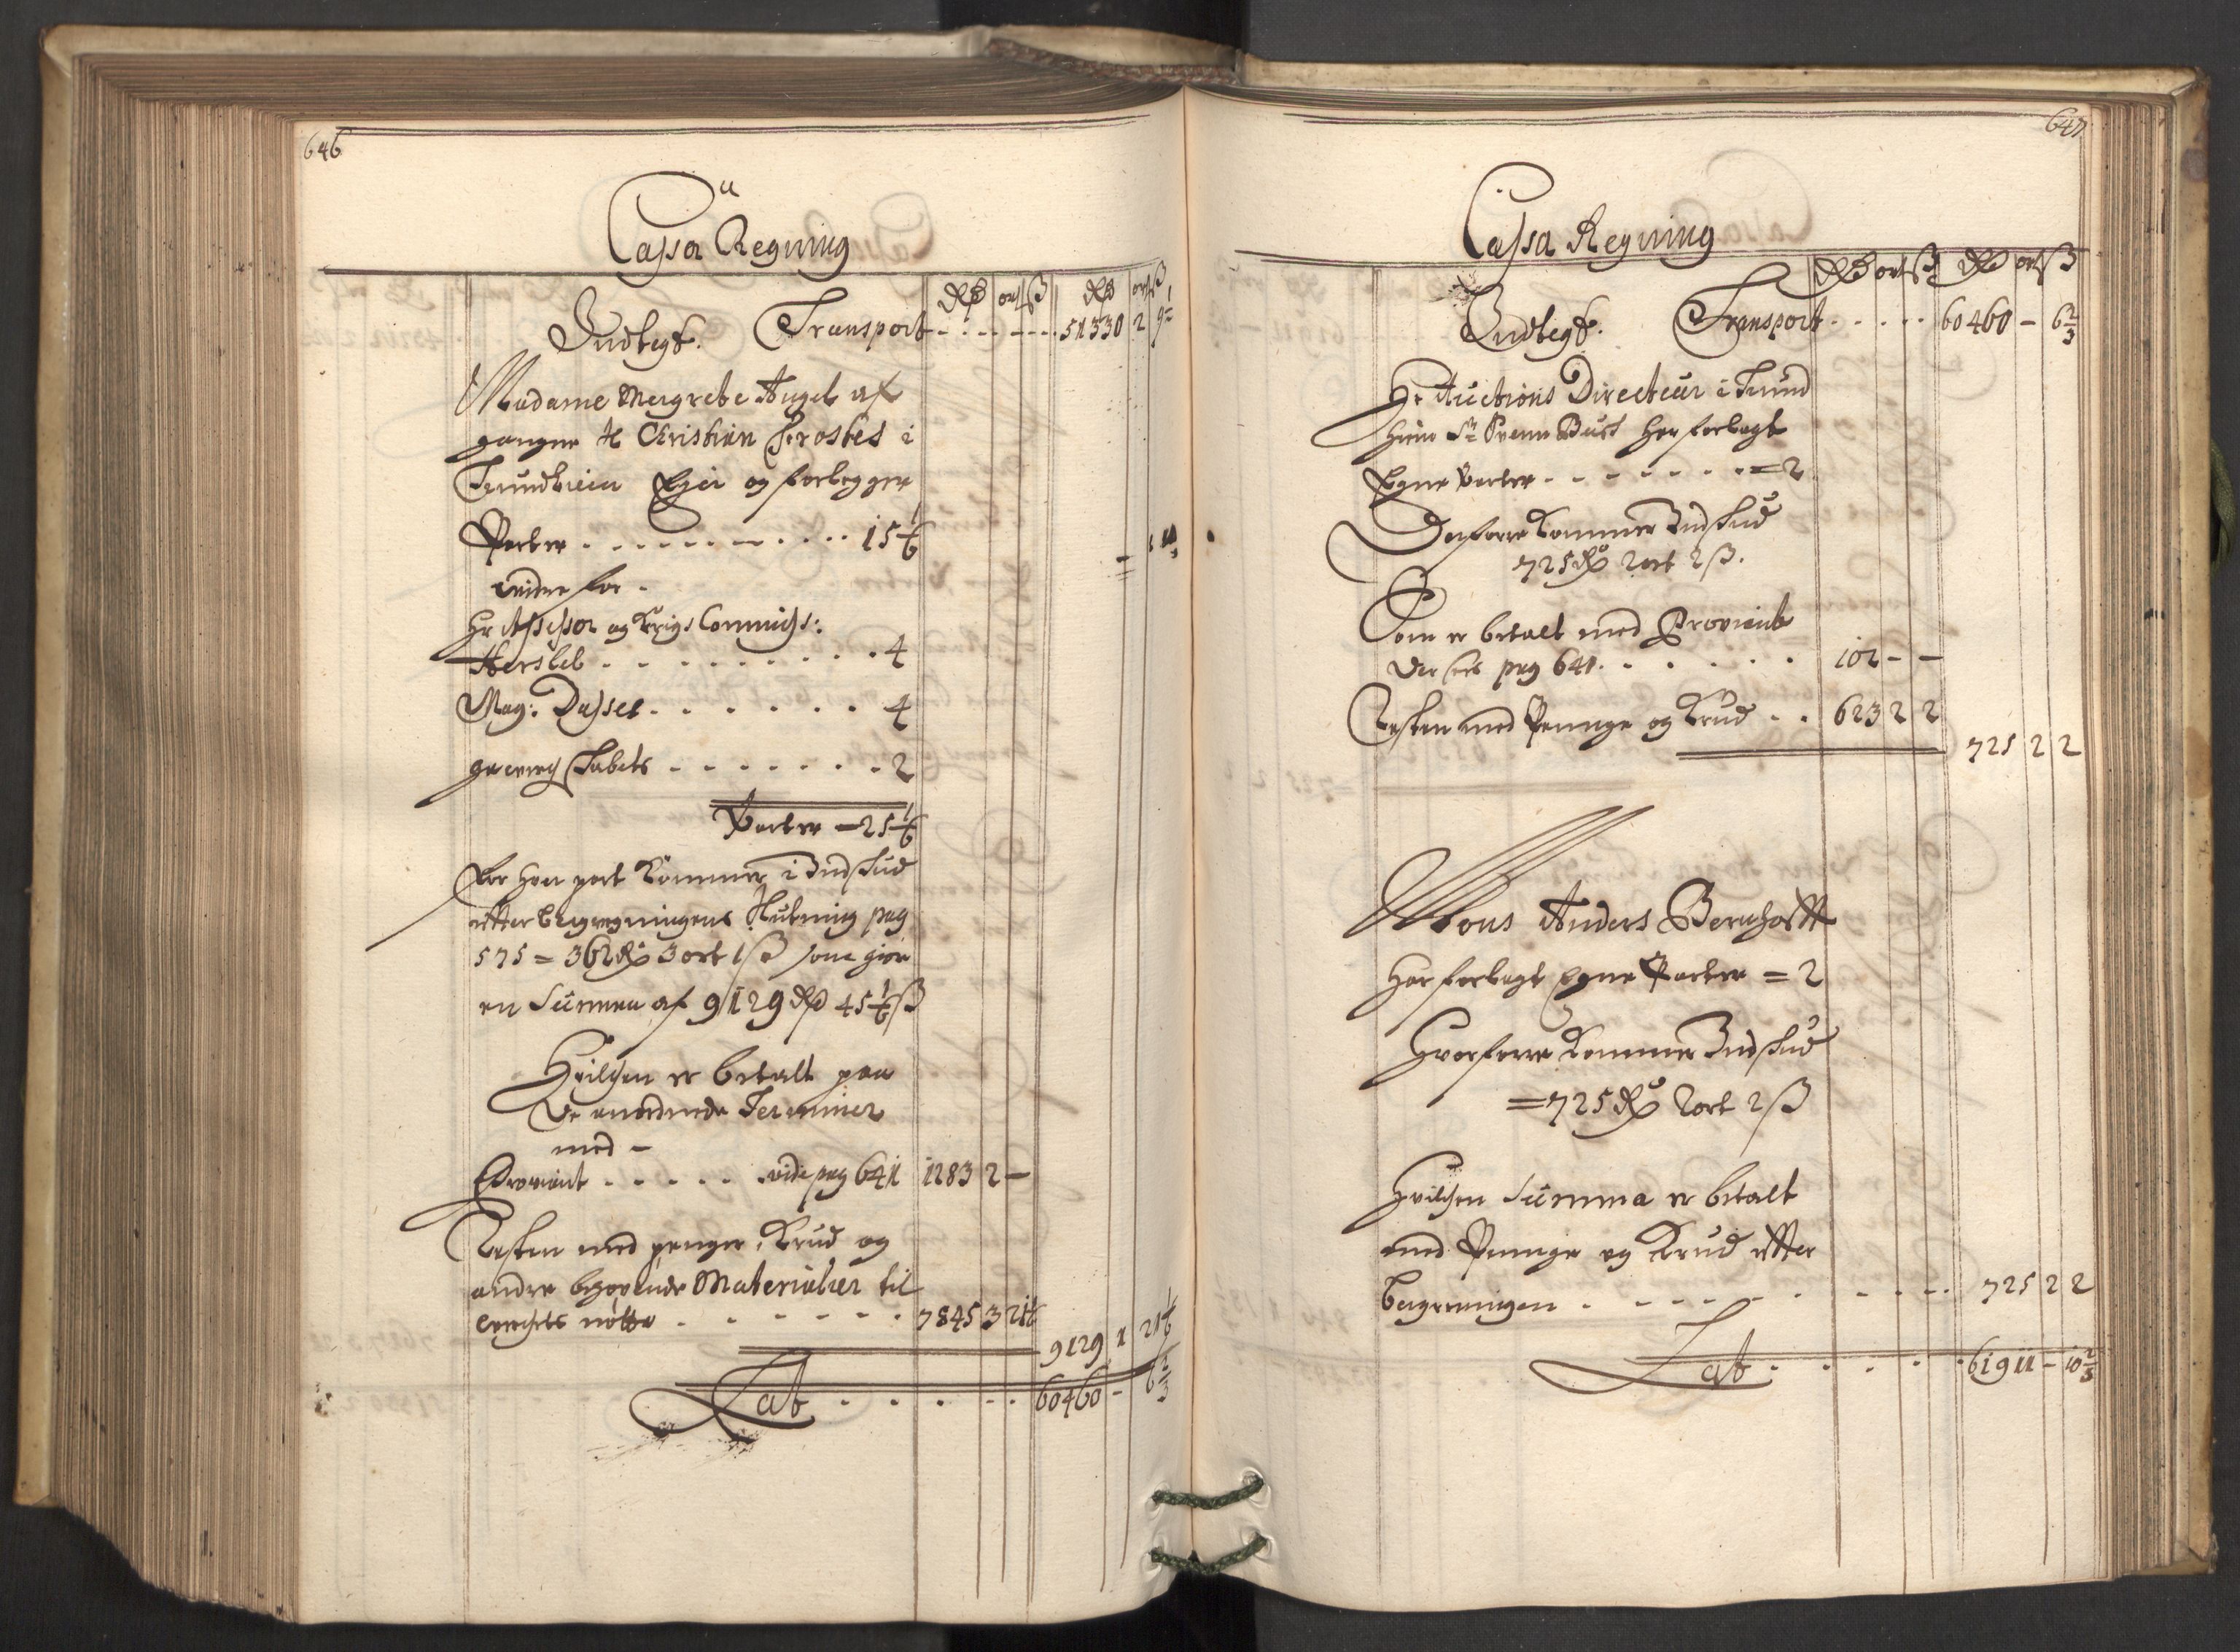 646
Cassa Regning
Rdr ort ß Rdr ort ß
Indtegt. Transport - - - - - 51330 2 9½
Madame Margrete Angel af
gangne H Christian Frostes i
Trundhiem Egen og forlegger
Parter . . . . . . . . . 15 1/6
videre for -
Hr Assessor og Krigs Commiss:
Hersleb . . . . . . . . . 4
Mag: Dasses . . . . . . 4
gewerchskabets - - - - - - - 2
Parter = 25 1/6
For hver part kommer i Indskud
efter Beregningens Slutning pag
575 = 362 Rdr 3 ort 1 ß som giør
en Summa af 9129 Rdr 45 1/6 ß
Hvilchen er betalt paa
de anordnede Terminer
med -
Proviant . . . . . vide pag 641 1283 2 -
Resten med penger, Krud og
andre behøvende Materialier til
verchets nøtte . . . . . . 7845 3 21 1/6
9129 1 21 1/6
Lat . . . . . . 60460 - 6 2/3
647
Cassa Regning
Rdr ort ß Rdr ort ß
Indtegt. Transport . . . . . 60460 - 6 2/3
Hr Auctions Directeur i Trund
hiem Sr Svenn Busc har forlagt
Egne Parter - - - - - - - = 2
Derforre kommer Indskud
725 Rdr 2 ort 2 ß.
Som er betalt med Proviant
der sees pag 641 . . . . . 102 - -
Resten med Penninge og Krud . . 623 2 2
725 2 2
Mons Anders Bernhoft
har forlagt Egne Parter = 2
Hvorforre kommer Indskud
= 725 Rdr 2 ort 2 ß
Hvilchen Summa er betalt
med Penninge og Krud efter
Beregningen . - - - - - . 725 2 2
Lat . . . . . 61911 - 10 2/3